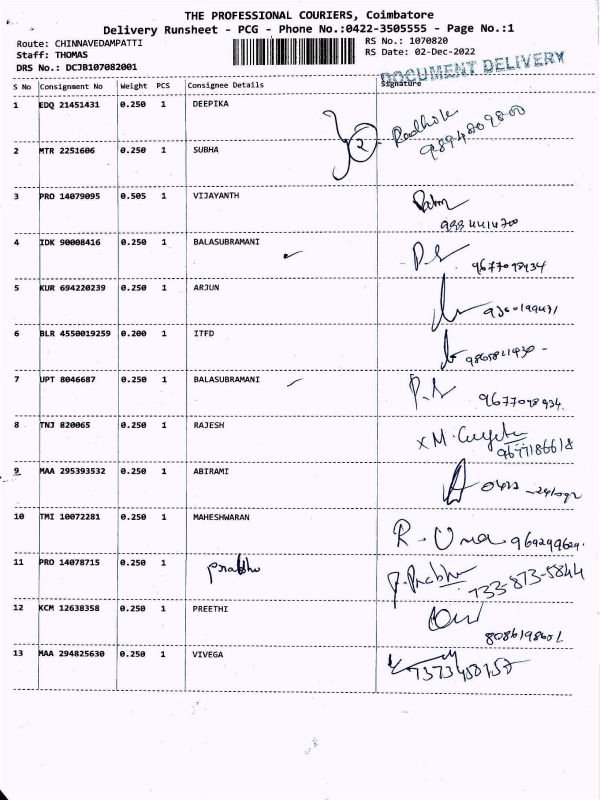 THE PROFESSIONAL COURIERS, Coimbatore
Delivery Runsheet - PCG - Phone No.:0422-3505555 - Page No.:1
Route: CHINNAVEDAMPATTI
RS No.: 1070820
Staff: THOMAS
RS Date: 02-Dec-2022
DRS No.: DCJB107082001
DOCUMENT DELIVERY
S No Consignment No Weight PCS Consignee Details Signature
1 EDQ 21451431 0.250 1 DEEPIKA
2
9894809800
2 MTR 2251606 0.250 1 SUBHA
3 PRO 14079095 0.505 1 VIJAYANTH
4 IDK 90008416 0.250 1 BALASUBRAMANI
9677098934
5 KUR 694220239 0.250 1 ARJUN
6 BLR 4550019259 0.200 1 ITFD
7 UPT 8046687 0.250 1 BALASUBRAMANI
9677098934.
8 TNJ 820065 0.250 1 RAJESH
9677186618
9 MAA 295393532 0.250 1 ABIRAMI
10 TMI 10072281 0.250 1 MAHESHWARAN
R. Uma
11 PRO 14078715 0.250 1 prabhu P. Prabhu
733-873-5844
12 KCM 12638358 0.250 1 PREETHI
13 MAA 294825630 0.250 1 VIVEGA
7373458157